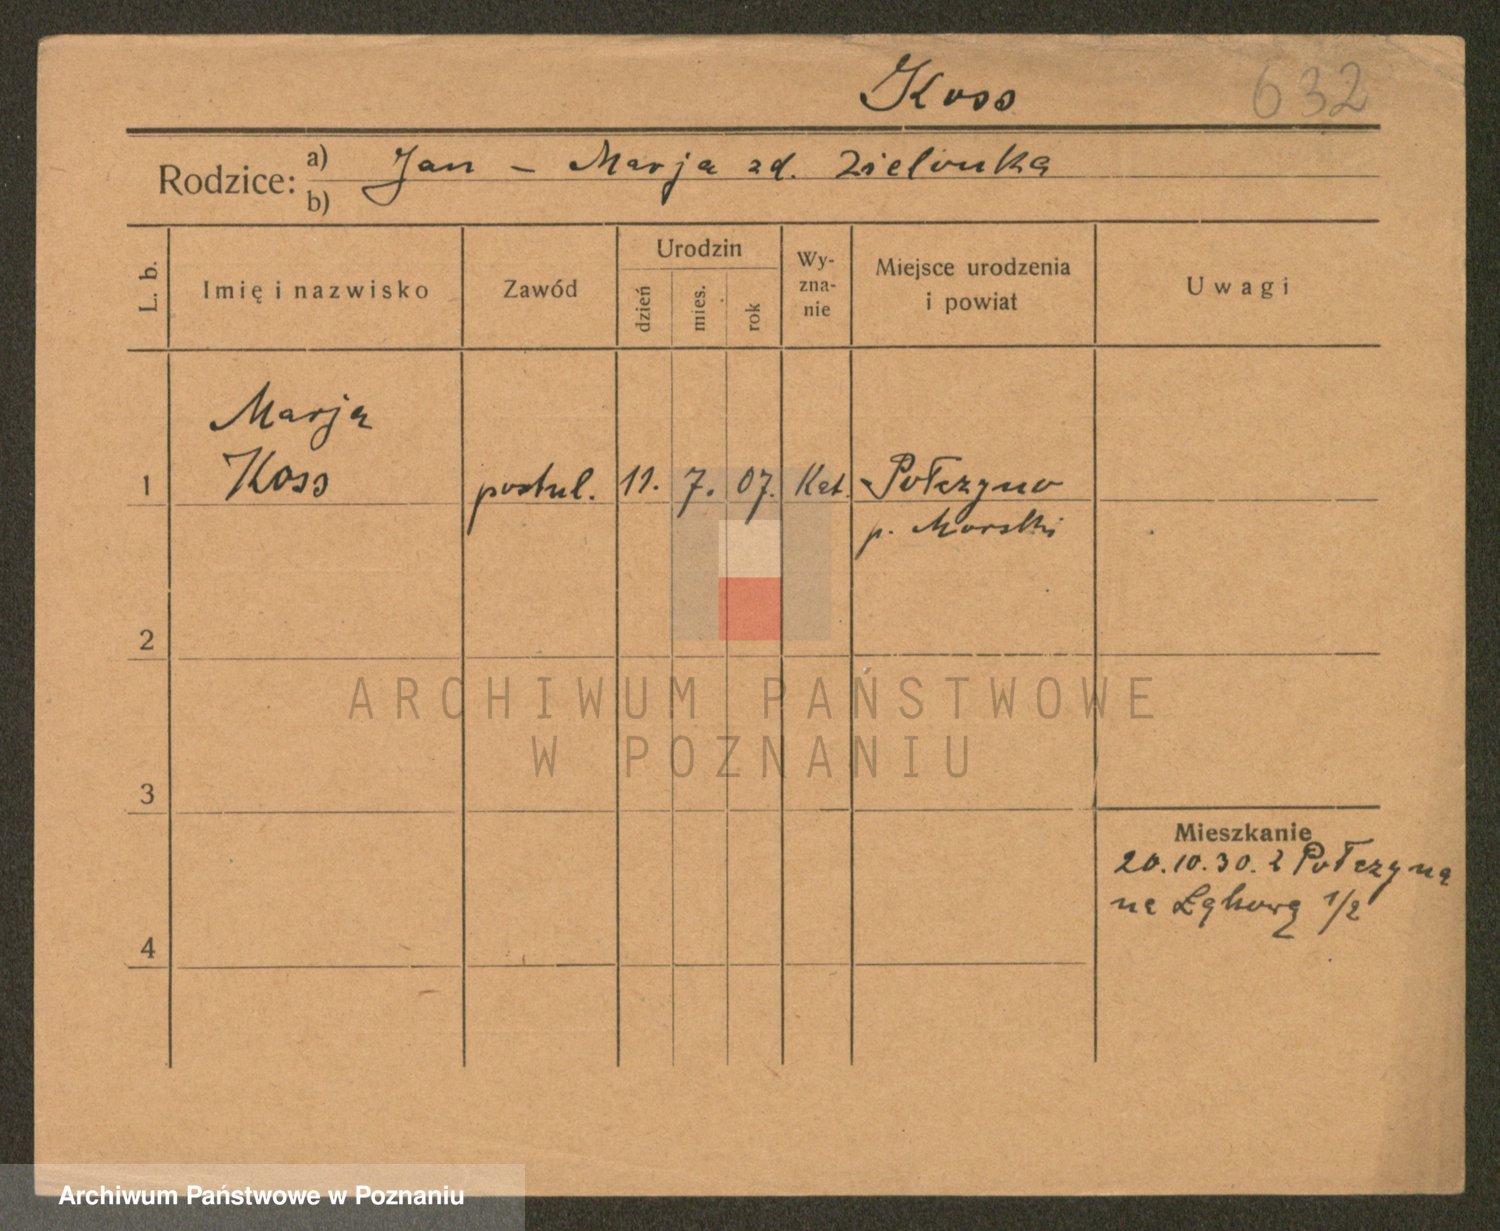 Koss
632
Rodzice: a) Jan – Marja zd. Zielonka
b)
L. b.
Imię i nazwisko
Zawód
Urodzin
dzień
mies.
rok
Wy-
zna-
nie
Miejsce urodzenia
i powiat
Uwagi
Marja
1 Koss postul. 11. 7. 07. Kat. Połczyno
p. Morski
2
3
4
Mieszkanie
20.10.30. z Połczyna
na Łąkową 1/2
ARCHIWUM PAŃSTWOWE
W POZNANIU
Archiwum Państwowe w Poznaniu